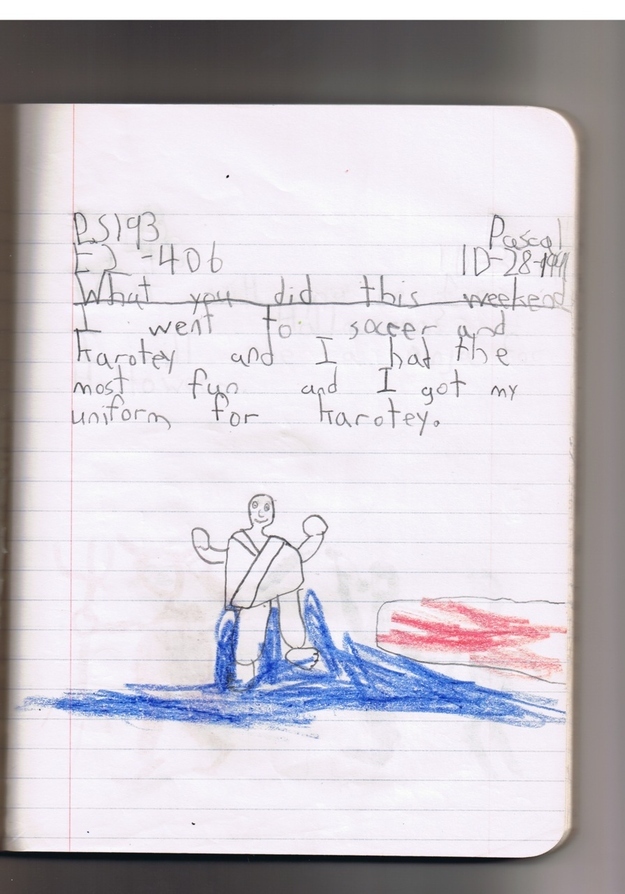 P.S193 Pascal
-406
What you did this weekend
I went to soccer and
karotey and I had the
most fun and I got my
uniform for karotey.